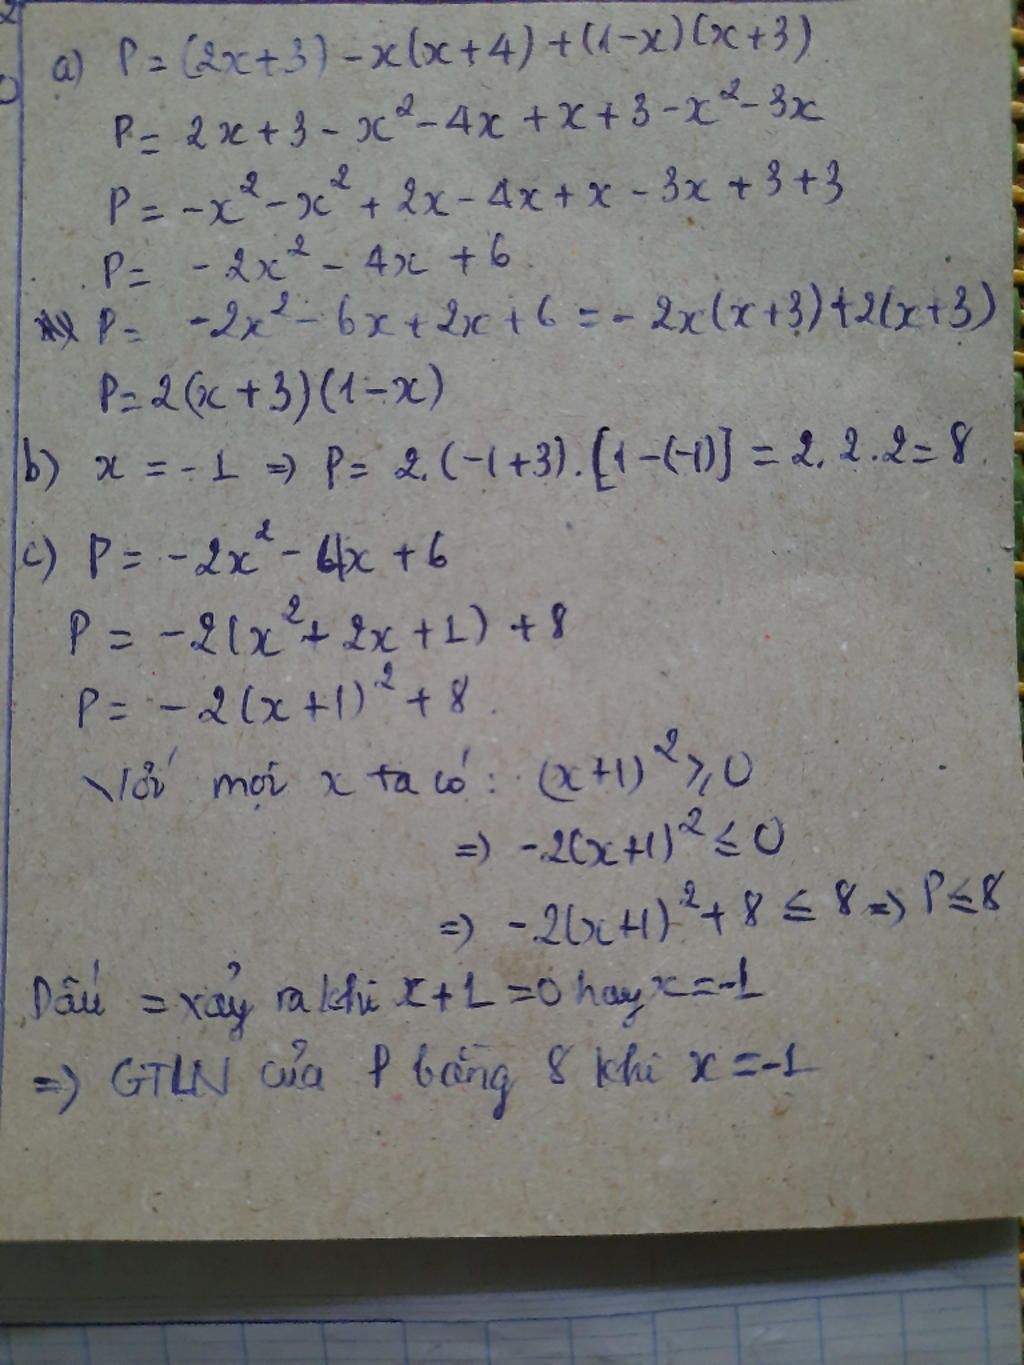 a) P = (2x+3) - x(x+4) + (1-x)(x+3)
P = 2x+3 - x² - 4x + x + 3 - x² - 3x
P = -x² - x² + 2x - 4x + x - 3x + 3 + 3
P = -2x² - 4x + 6.
P = -2x² - 6x + 2x + 6 = -2x(x+3) + 2(x+3)
P = 2(x+3)(1-x)
b) x = -1 => P = 2.(-1+3).[1-(-1)] = 2.2.2 = 8.
c) P = -2x² - 4x + 6
P = -2(x² + 2x + 1) + 8
P = -2(x+1)² + 8.
Với mọi x ta có: (x+1)² ≥ 0
=> -2(x+1)² ≤ 0
=> -2(x+1)² + 8 ≤ 8 => P ≤ 8
Dấu = xảy ra khi x+1 = 0 hay x = -1
=> GTLN của P bằng 8 khi x = -1